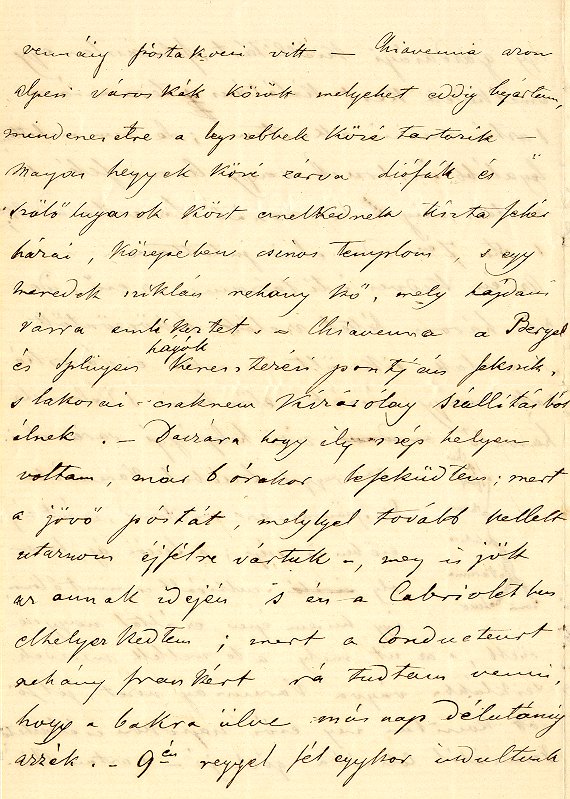 vennáig postakocsi vitt – Chiavenna azon
alpesi városkák között melyeket eddig bejártam,
mindenesetre a legszebbek közé tartozik –
Magas hegyek közé zárva diófák és
szőlő lugasok közt emelkednek tiszta fehér
házai, közepében csinos templom, s egy
meredek sziklán nehány kő, mely hajdani
várra emlékeztet. – Chiavenna a Bergel
hágók
és Splügen kereszterési pontján fekszik,
s lakosai csaknem kizárólag szállításból
élnek. – Daczára hogy ily szép helyen
voltam, már 6 órakor lefeküdtem; mert
a jövő póstát, melylyel tovább kellett
utaznom éjfélre vártuk –, meg is jött
az annak idején s én a Cabriolet ben
elhelyezkedtem; mert a Conducteurt
nehány frankért rá tudtam venni,
hogy a bakra ülve másnap délutánig
azzék. – 9én reggel fél egykor indultunk